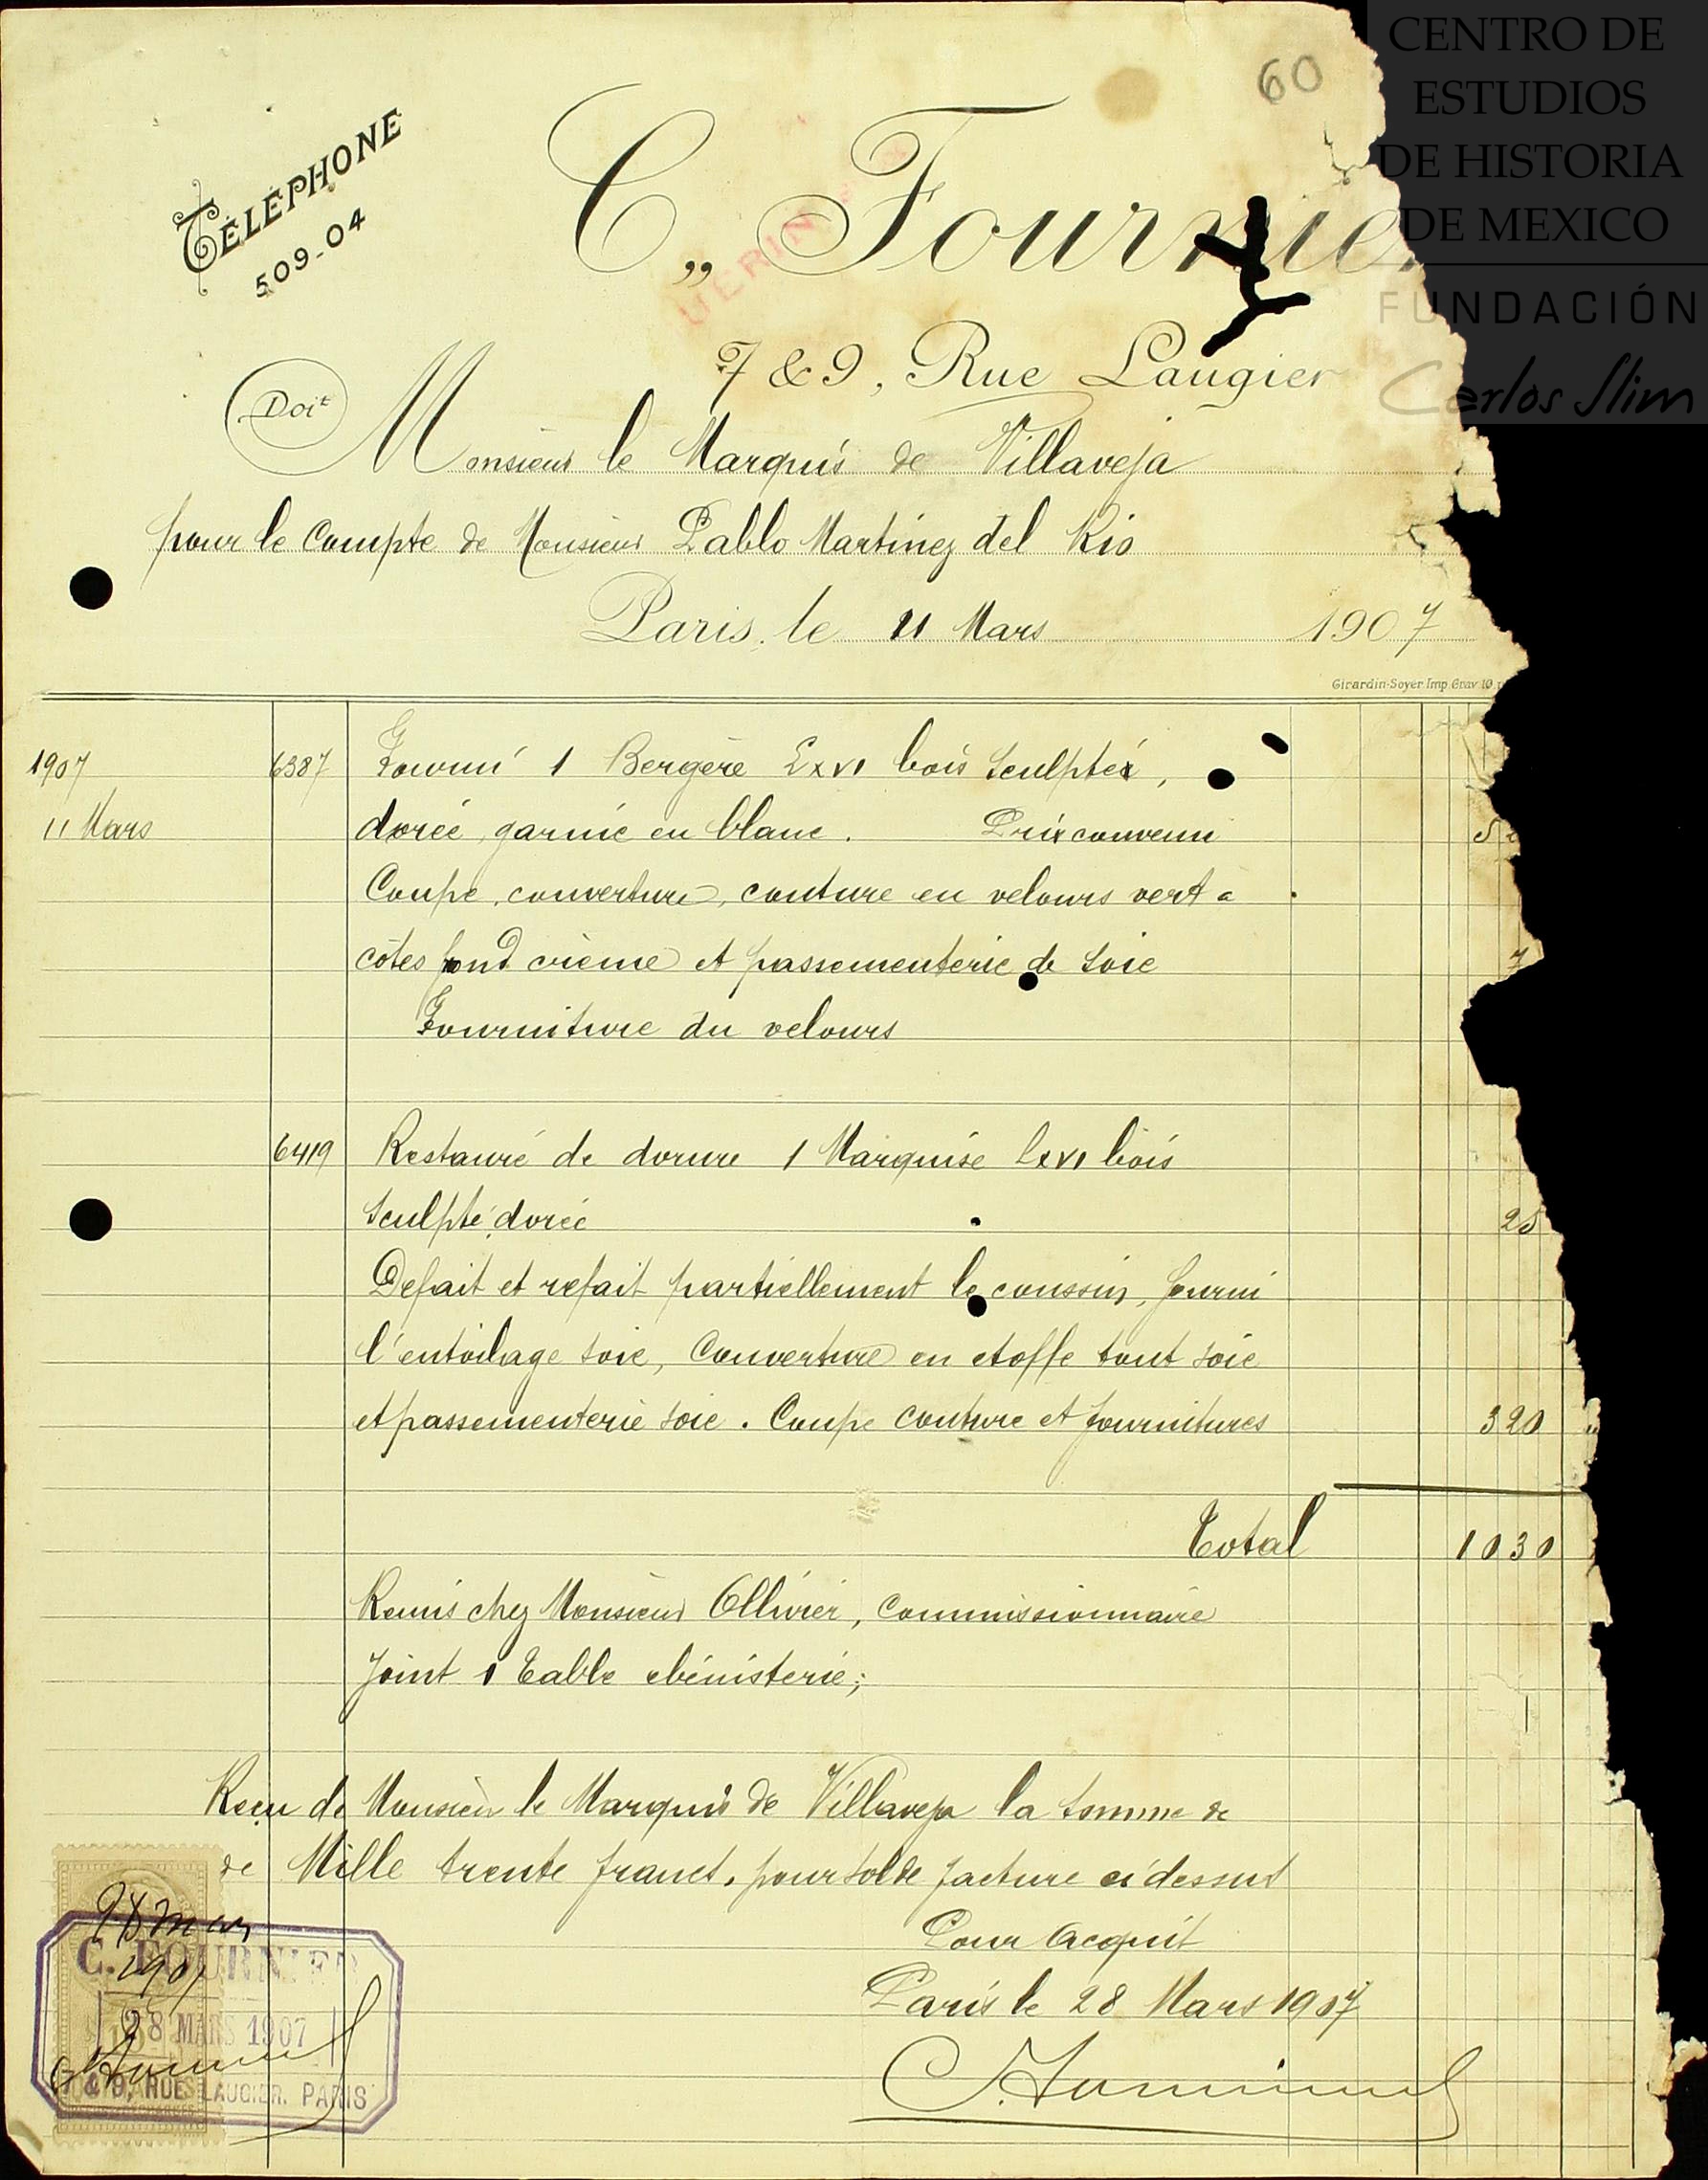 60
CENTRO DE
ESTUDIOS
DE HISTORIA
DE MEXICO
FUNDACIÓN
Carlos Slim
TÉLÉPHONE
509-04
C. Fournie
7 & 9, Rue Laugier
Doit
Monsieur le Marquis de Villaveja
pour le Compte de Monsieur Pablo Martinez del Rio
Paris, le 11 Mars 1907
Girardin-Soyer Imp. Grav. 10
1907 6387 Fourni 1 Bergère Lxvi bois sculptée,
11 Mars dorée, garnie en blanc. Prix convenu
Coupe, couverture, couture en velours vert à
côtes fond crème et passementerie de soie 7
Fourniture du velours
6419 Restauré de dorure 1 Marquise Lxvi bois
sculpté, dorée 25
Defait et refait partiellement le coussin, fourni
l'entoilage soie, Couverture en etoffe tout soie
et passementerie soie. Coupe couture et fournitures 320 "
Total 1030
Remis chez Monsieur Ollivier, Commissionnaire
Joint 1 Table ebénisterie;
Reçu de Monsieur le Marquis de Villaveja la somme de
de Mille trente francs, pour solde facture ci dessus
Pour Acquit
Paris le 28 Mars 1907
C. Fournier
28 mars
1907
C. FOURNIER
28 MARS 1907
7 & 9, RUE LAUGIER. PARIS